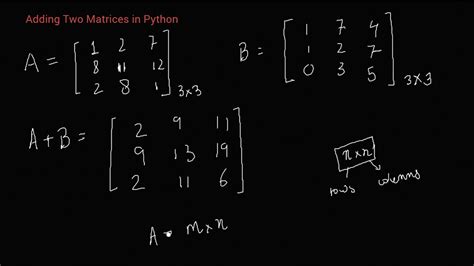 Adding Two Matrices in Python
A = [ 1 2 7
8 11 12
2 8 1 ] 3×3
B = [ 1 7 4
1 2 7
0 3 5 ] 3×3
A + B = [ 2 9 11
9 13 19
2 11 6 ]
n×n
rows columns
A m×n